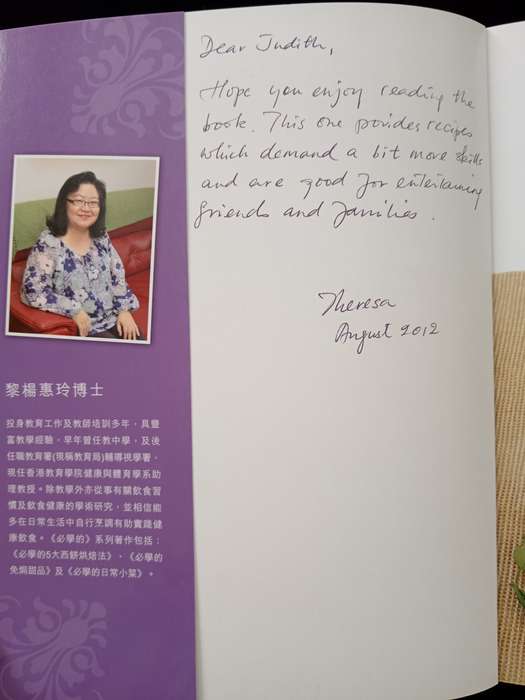 Dear Judith,
Hope you enjoy reading the
book. This one povides recipes
which demand a bit more skills
and are good for entertaining
friends and families.
Theresa
August 2012
黎楊惠玲博士
投身教育工作及教師培訓多年，具豐
富教學經驗，早年曾任教中學，及後
任職教育署(現稱教育局)輔導視學署，
現任香港教育學院健康與體育學系助
理教授。除教學外亦從事有關飲食習
慣及飲食健康的學術研究，並相信能
多在日常生活中自行烹調有助實踐健
康飲食。《必學的》系列著作包括：
《必學的5大西餅烘焙法》、《必學的
免焗甜品》及《必學的日常小菜》。